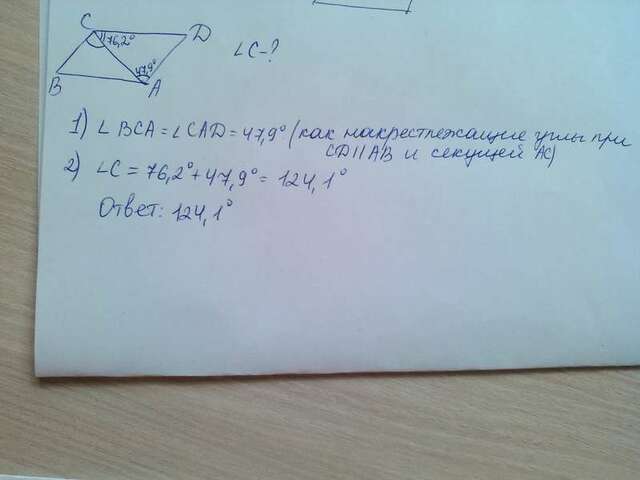 C
76,2°
D
∠C-?
47,9°
B
A
1) ∠BCA=∠CAD=47,9° (как накрестлежащие углы при
CD||AB и секущей AC)
2) ∠C=76,2°+47,9°=124,1°
Ответ: 124,1°